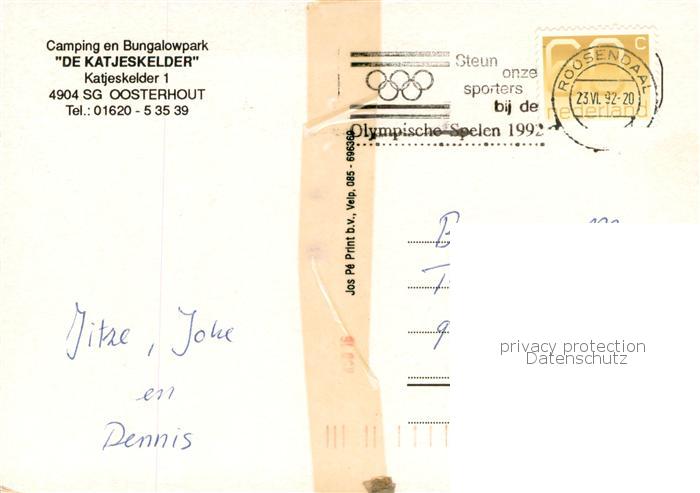 Camping en Bungalowpark
"DE KATJESKELDER"
Katjeskelder 1
4904 SG OOSTERHOUT
Tel.: 01620 - 5 35 39
Steun
onze
sporters
bij de
Olympische Spelen 1992
ROOSENDAAL
23.VI.92-20
c
nederland
Jos Pé Print b.v., Velp, 085 - 696369
Jitze, Joke
en
Dennis
privacy protection
Datenschutz